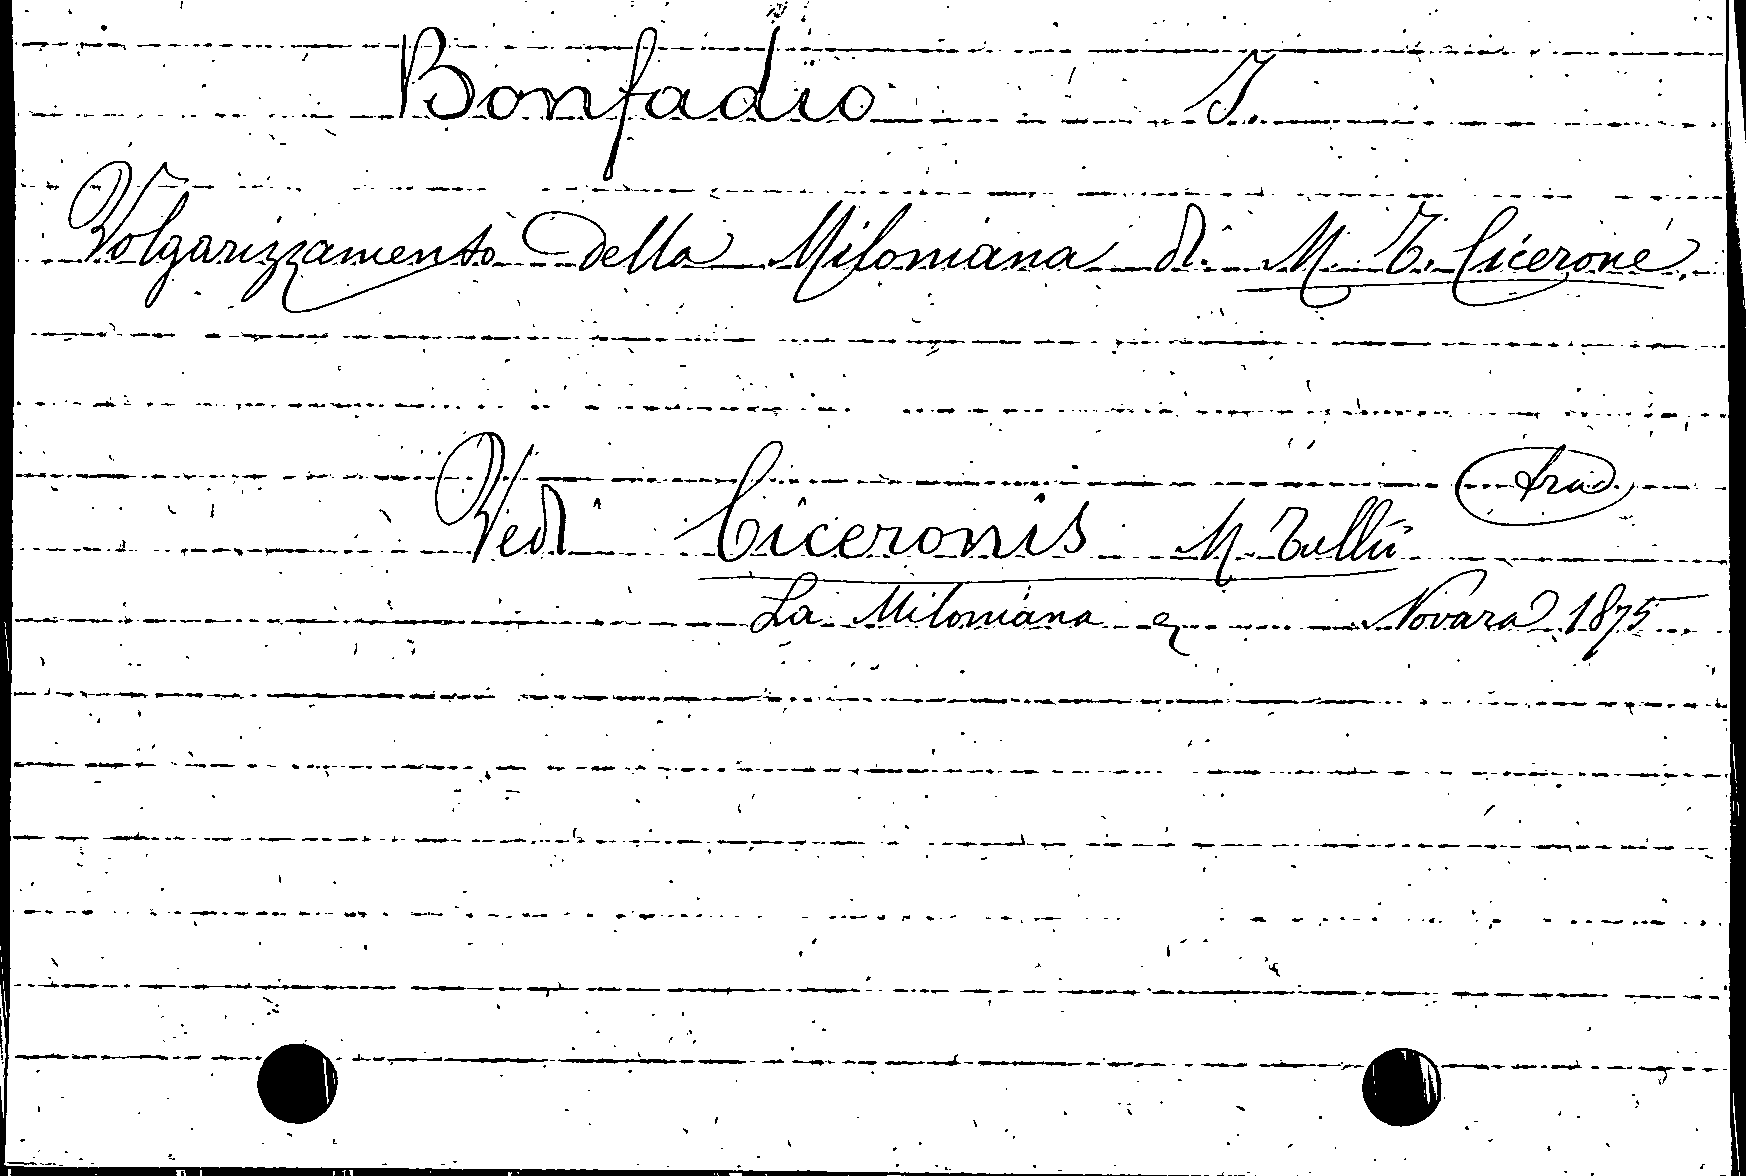 Bonfadio J.
Volgarizzamento della Miloniana di M. T. Cicerone.
trad.
Vedi Ciceronis M. Tullii
La Miloniana ec Novara 1875